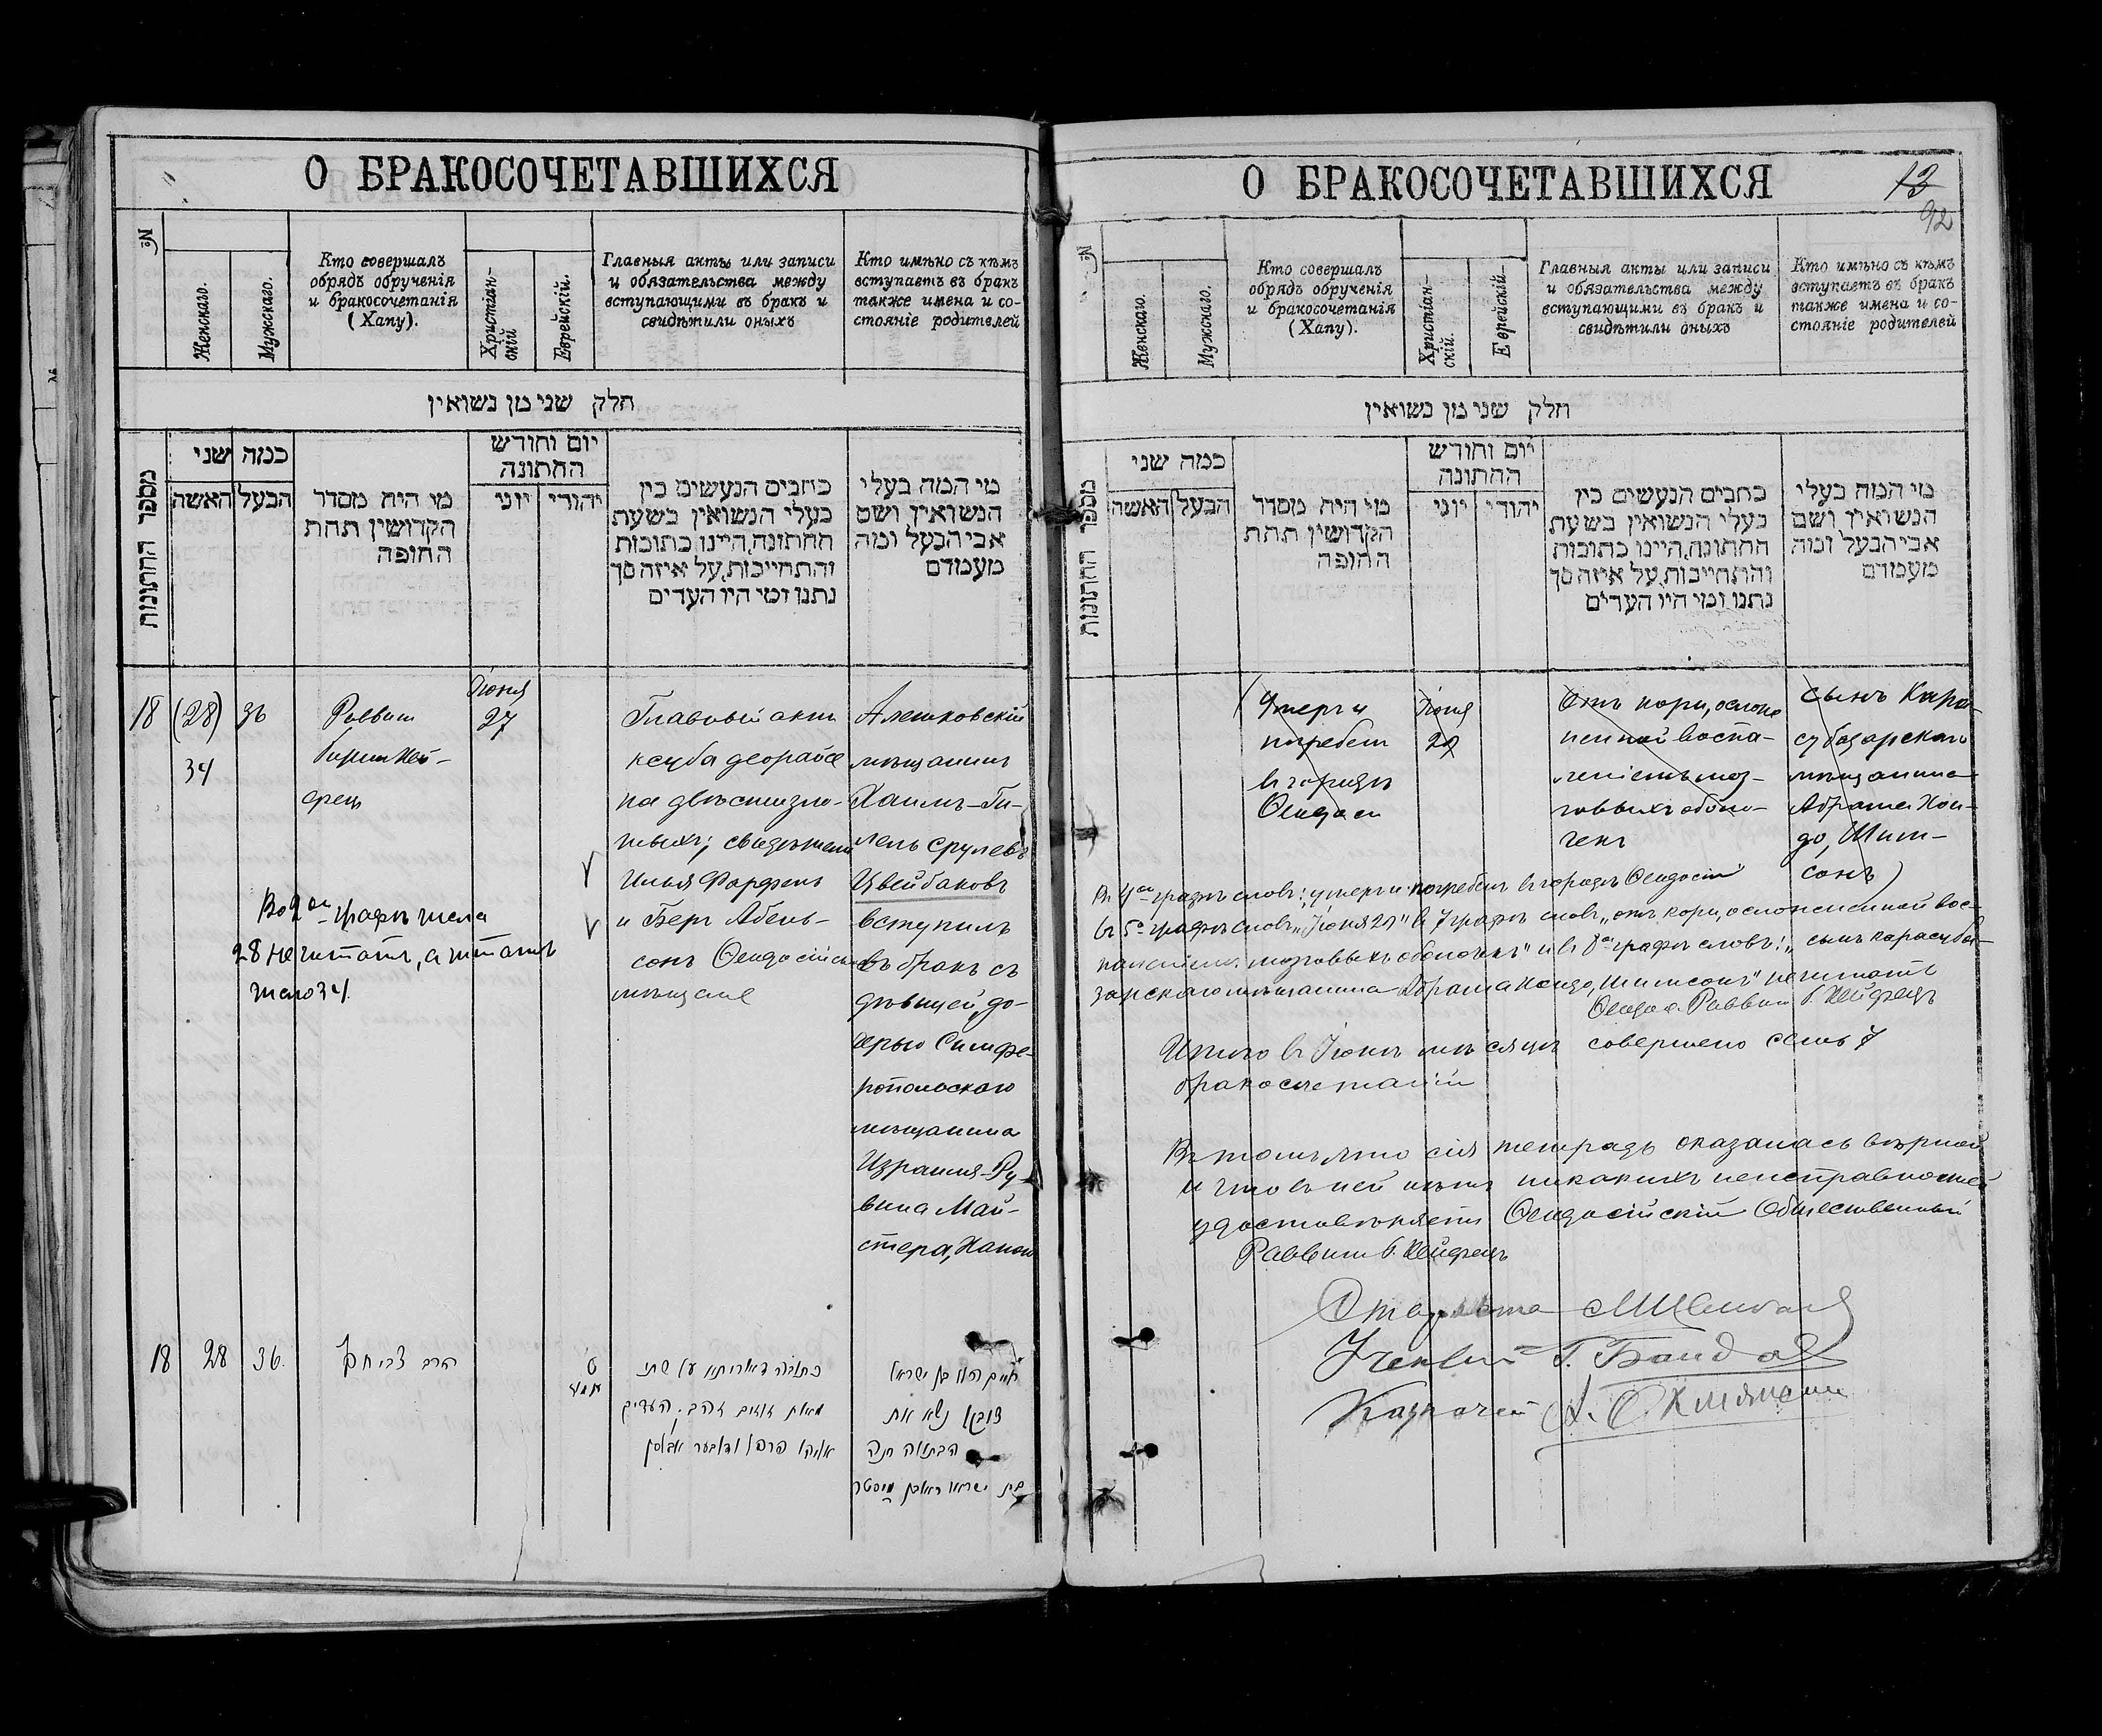 О БРАКОСОЧЕТАВШИХСЯ
№
Женскаго.
Мужскаго.
Кто совершалъ
обрядъ обрученія
и бракосочетанія
(Хапу).
Христіан-
скій
Еврейскій.
Главныя акты или записи
и обязательства между
вступающими въ бракъ и
свидѣтили оныхъ
Кто имѣно съ кѣмъ
вступаетъ въ бракъ
также имена и со-
стояніе родителей
חלק שני מן נשואין
מספר החתונות
כמה שני
האשה
הבעל
מי היה מסדר
הקדושין תחת
החופה
יום וחודש
החתונה
יוני
יהודי
כתבים הנעשים בין
בעלי הנשואין בשעת
החתונה, היינו כתובות
והתחייבות, על איזה סך
נתנו ומי היו העדים
מי המה בעלי
הנשואין ושם
אבי הבעל ומה
מעמדם
18
(28)
34
36
Раввинъ
Кей-
фецъ
Іюня
27
Главный актъ
ксуба деорайсе
на двѣсти зло-
тыхъ; свидѣтели
Илья Фарфель
и Беръ Абель-
сонъ Ѳеодосійскіе
мѣщане
Алешковскій
мѣщанинъ
Хаимъ-Ги-
лель Срулевъ
Цвейбаковъ
вступилъ
въ бракъ съ
дѣвицей, до-
черью Симфе-
ропольскаго
мѣщанина
Израиля-Ру-
вина Май-
стера, Ханой
Во 2ой графѣ числа
28 не читать, а читать
число 34.
18
28
36.
הרב צבי
ט
תמוז
כתובה דאורייתא על שתי
מאות זוזים זהב. העדים
אליהו פרפל
חיים הלל בן ישראל
נשא את
הבתולה חנה
בת ישראל ראובן מיסטר
О БРАКОСОЧЕТАВШИХСЯ
13
92
№
Женскаго.
Мужскаго.
Кто совершалъ
обрядъ обрученія
и бракосочетанія
(Хапу).
Христіан-
скій.
Еврейскій.
Главныя акты или записи
и обязательства между
вступающими въ бракъ и
свидѣтили оныхъ
Кто имѣно съ кѣмъ
вступаетъ въ бракъ
также имена и со-
стояніе родителей
חלק שני מן נשואין
מספר החתונות
כמה שני
האשה
הבעל
מי היה מסדר
הקדושין תחת
החופה
יום וחודש
החתונה
יוני
יהודי
כתבים הנעשים בין
בעלי הנשואין בשעת
החתונה, היינו כתובות
והתחייבות, על איזה סך
נתנו ומי היו העדים
מי המה בעלי
הנשואין ושם
אבי הבעל ומה
מעמדם
(Умеръ и
погребенъ
въ городѣ
Ѳеодосіи
Іюня
29
Отъ кори, ослож-
ненной воспа-
леніемъ моз-
говыхъ оболо-
чекъ
сынъ Кара-
субазарскаго
мѣщанина
Абрама Кон-
до, Шим-
сонъ)
Въ 4ой графѣ словъ: „умеръ и погребенъ въ городѣ Ѳеодосіи"
въ 5ой графѣ словъ „Іюня 29" въ 7 графѣ словъ „отъ кори, осложненной вос-
паленіемъ мозговыхъ оболочекъ" и въ 8ой графѣ словъ: „сынъ карасуба-
зарскаго мѣщанина Абрама Кондо, Шимсонъ" не читать
Ѳеодос. Раввинъ Б. Кейфецъ
Итого въ Іюнѣ мѣсяцѣ совершено семь 7
бракосочетаній
Въ томъ, что сія тетрадь оказалась вѣрной
и что въ ней нѣтъ никакихъ неисправностей
удостовѣряетъ Ѳеодосійскій Общественный
Раввинъ Б. Кейфецъ
Староста
Ученый Г. Банд
Казначей